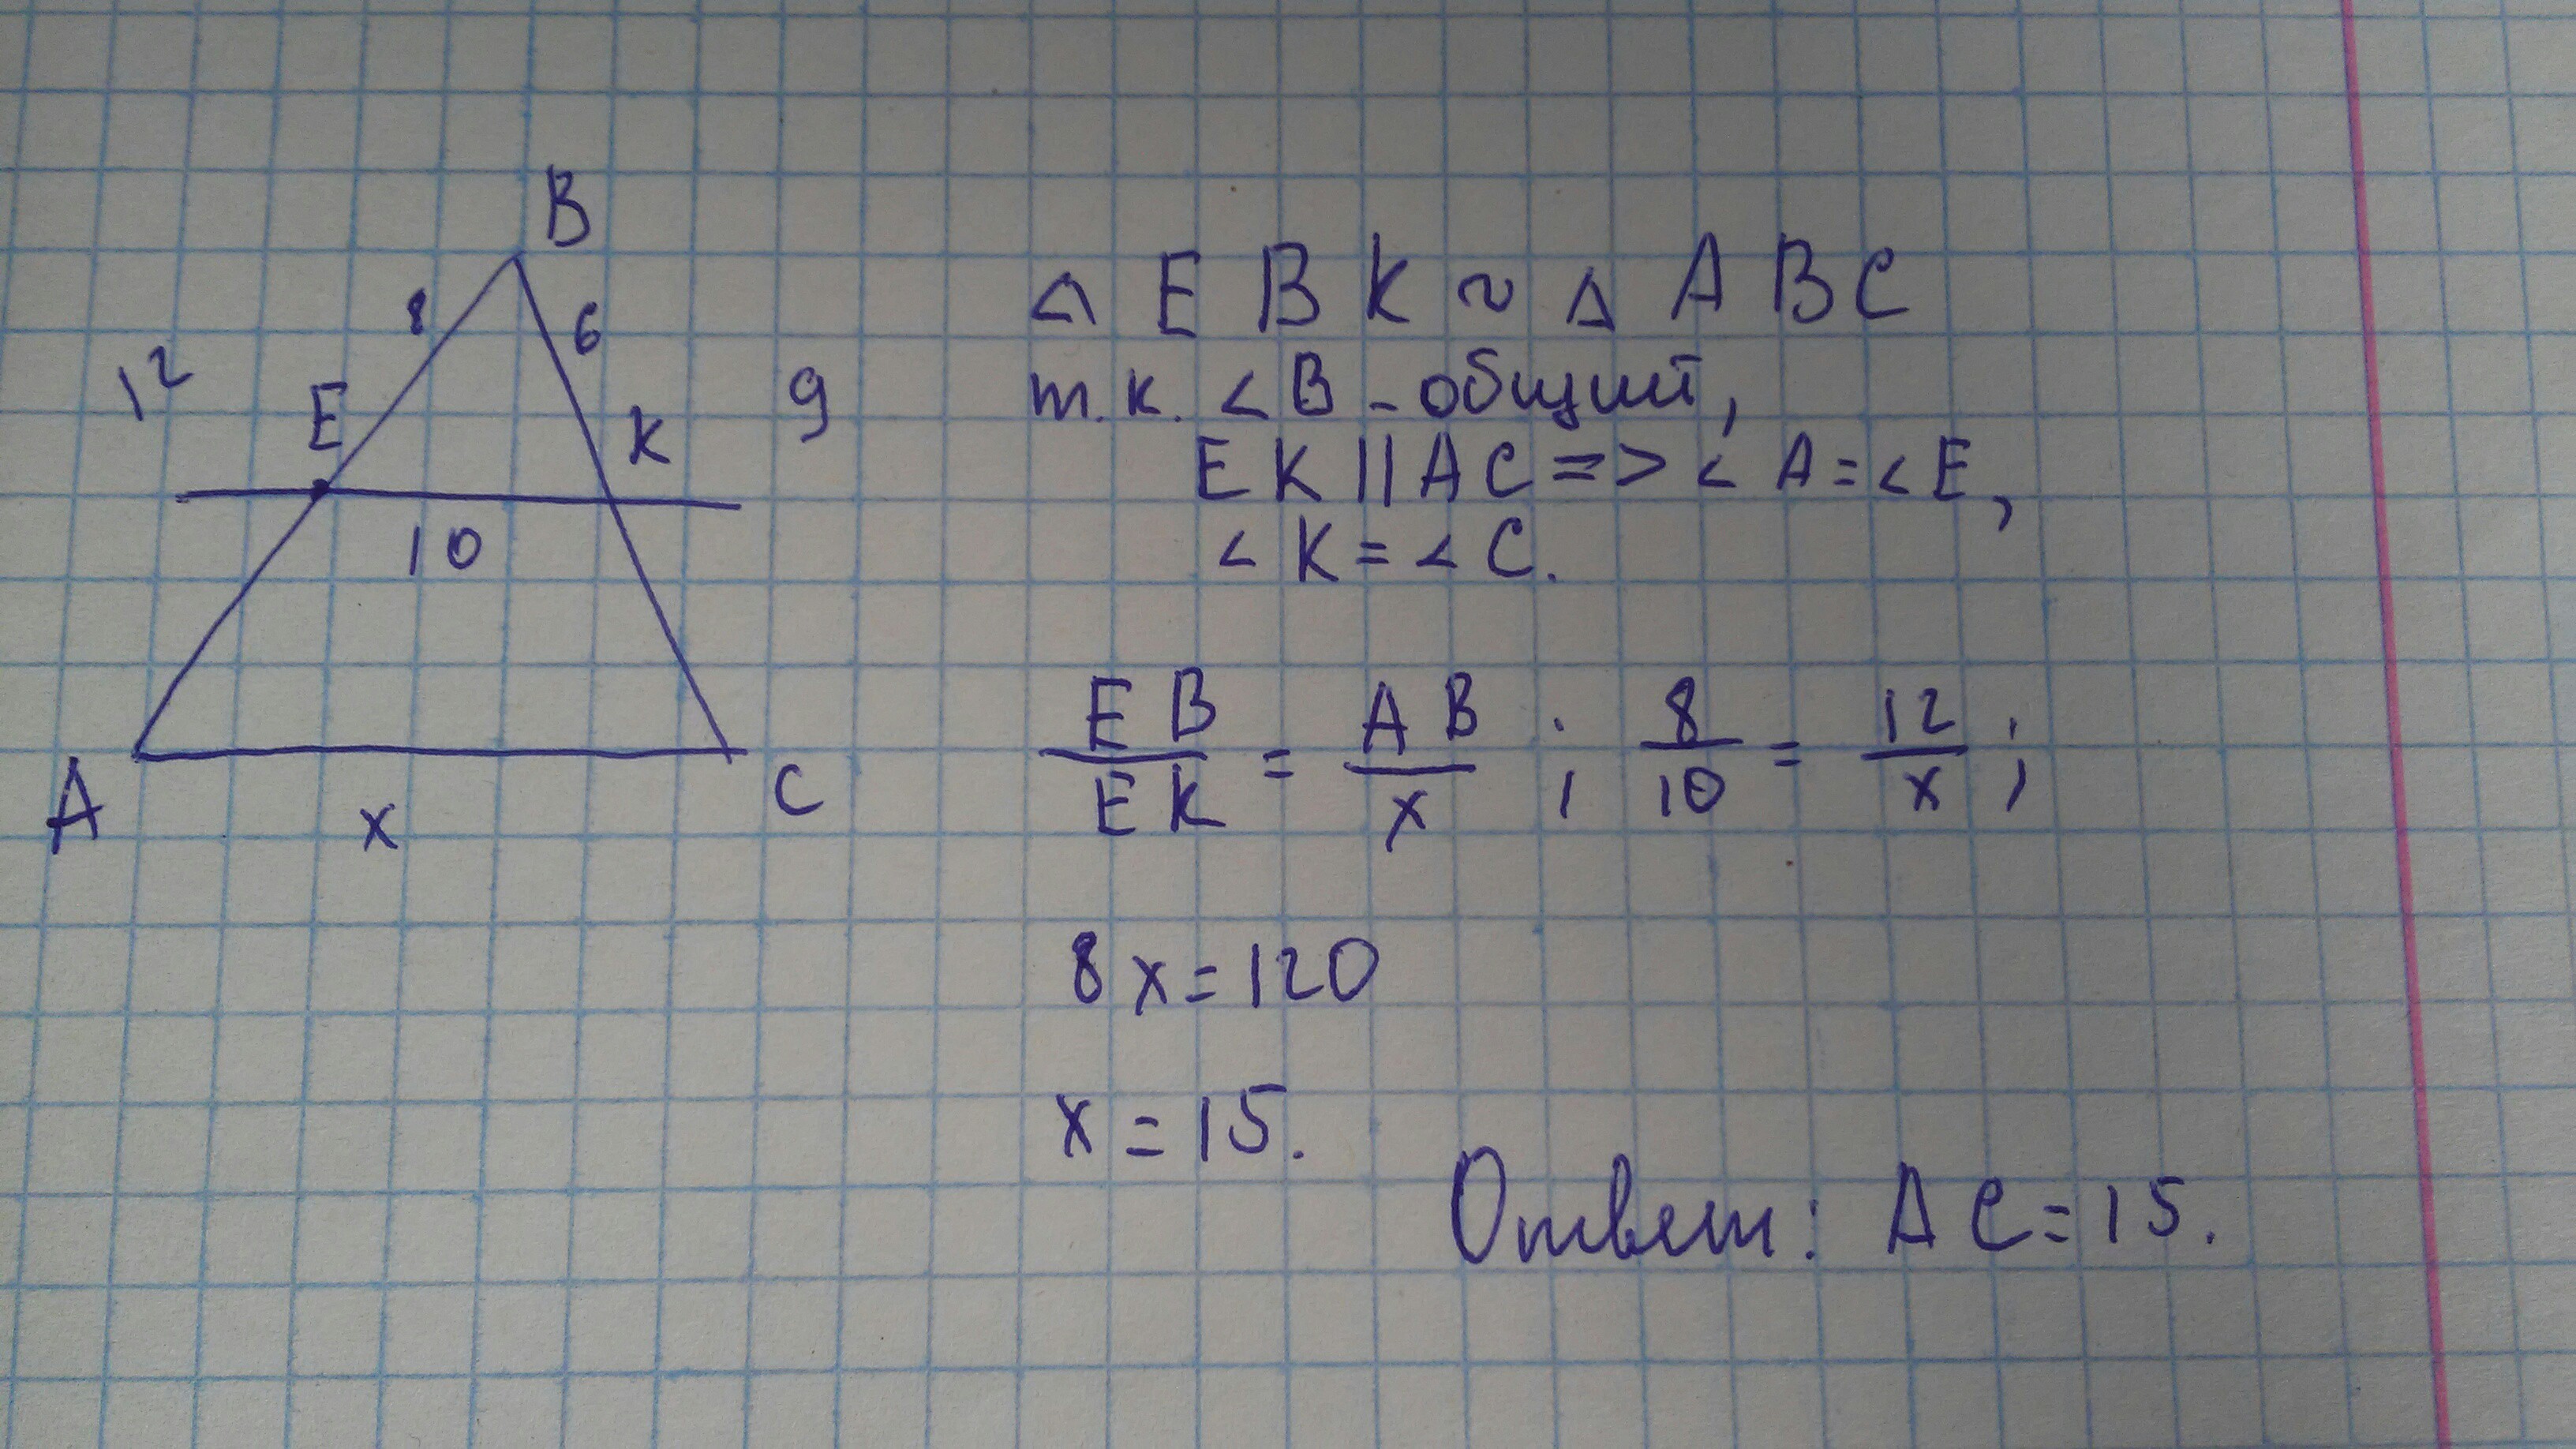 B
8
6
12
E
K
9
10
A
x
C
△ EBK ~ △ ABC
т.к. <B - общий,
EK || AC => < A = < E,
< K = < C.
EB/EK = AB/x ; 8/10 = 12/x ;
8x = 120
x = 15.
Ответ: AC = 15.